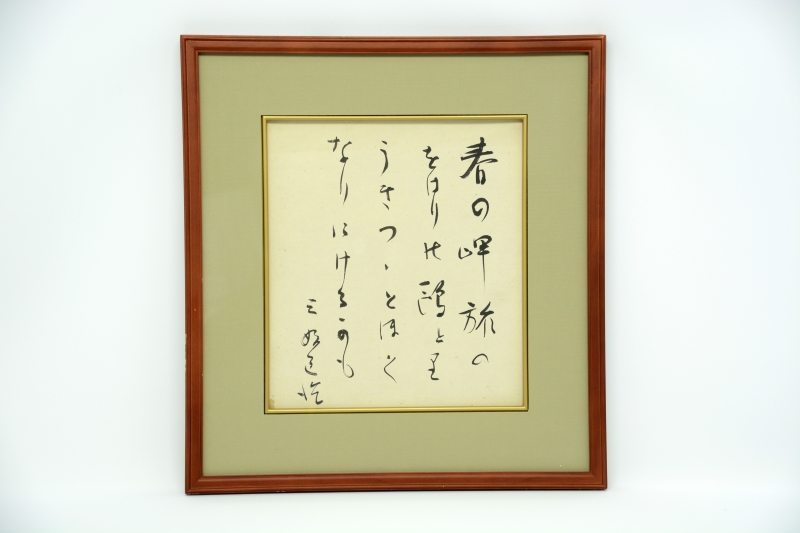 春の岬旅の
をはりの鴎とり
うきつゝとほく
なりにけるかも
三好達治